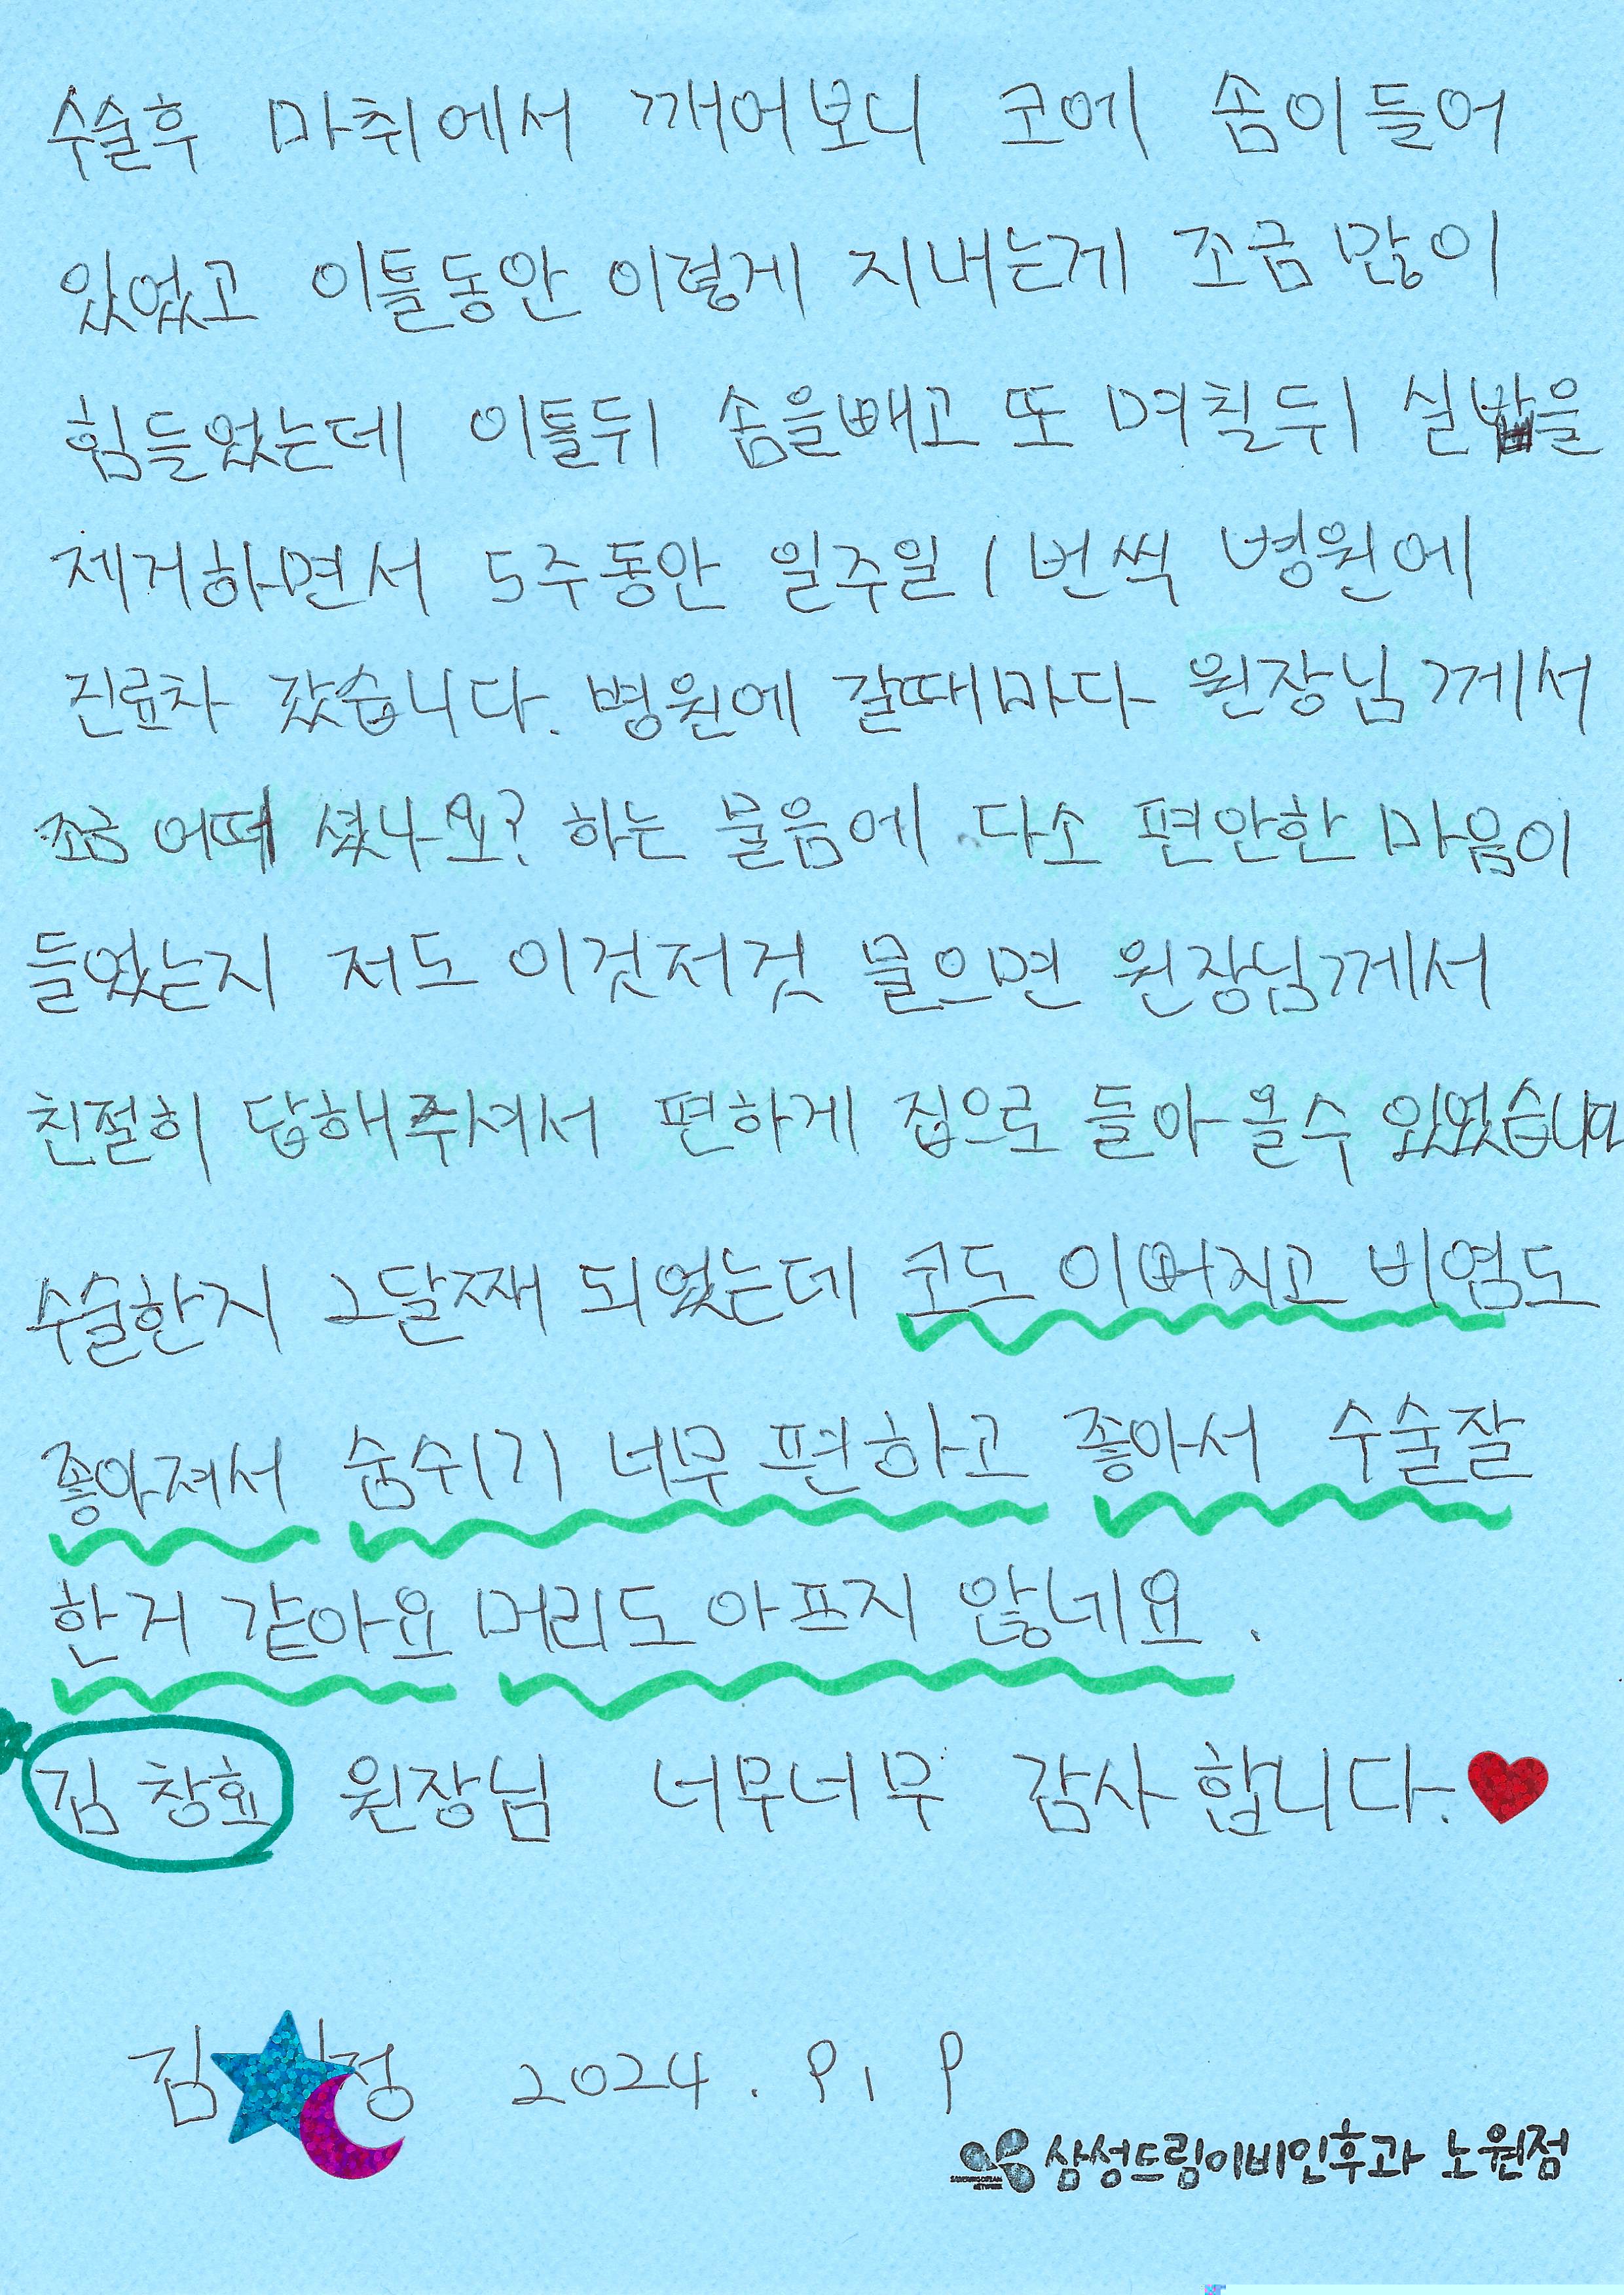 수술후 마취에서 깨어보니 코에 솜이들어
있었고 이틀동안 이렇게 지내는게 조금 많이
힘들었는데 이틀뒤 솜을빼고 또 며칠뒤 실밥을
제거하면서 5주동안 일주일 1번씩 병원에
진료차 갔습니다. 병원에 갈때마다 원장님께서
조금 어떠셨나요? 하는 물음에 다소 편안한 마음이
들었는지 저도 이것저것 물으면 원장님께서
친절히 답해주셔서 편하게 집으로 돌아올수 있었습니다
수술한지 2달째 되었는데 코도 이뻐지고 비염도
좋아져서 숨쉬기 너무 편하고 좋아서 수술잘
한거 같아요 머리도 아프지 않네요.
김창효 원장님 너무너무 감사합니다.
김 정 2024. 9. 9
삼성드림이비인후과 노원점